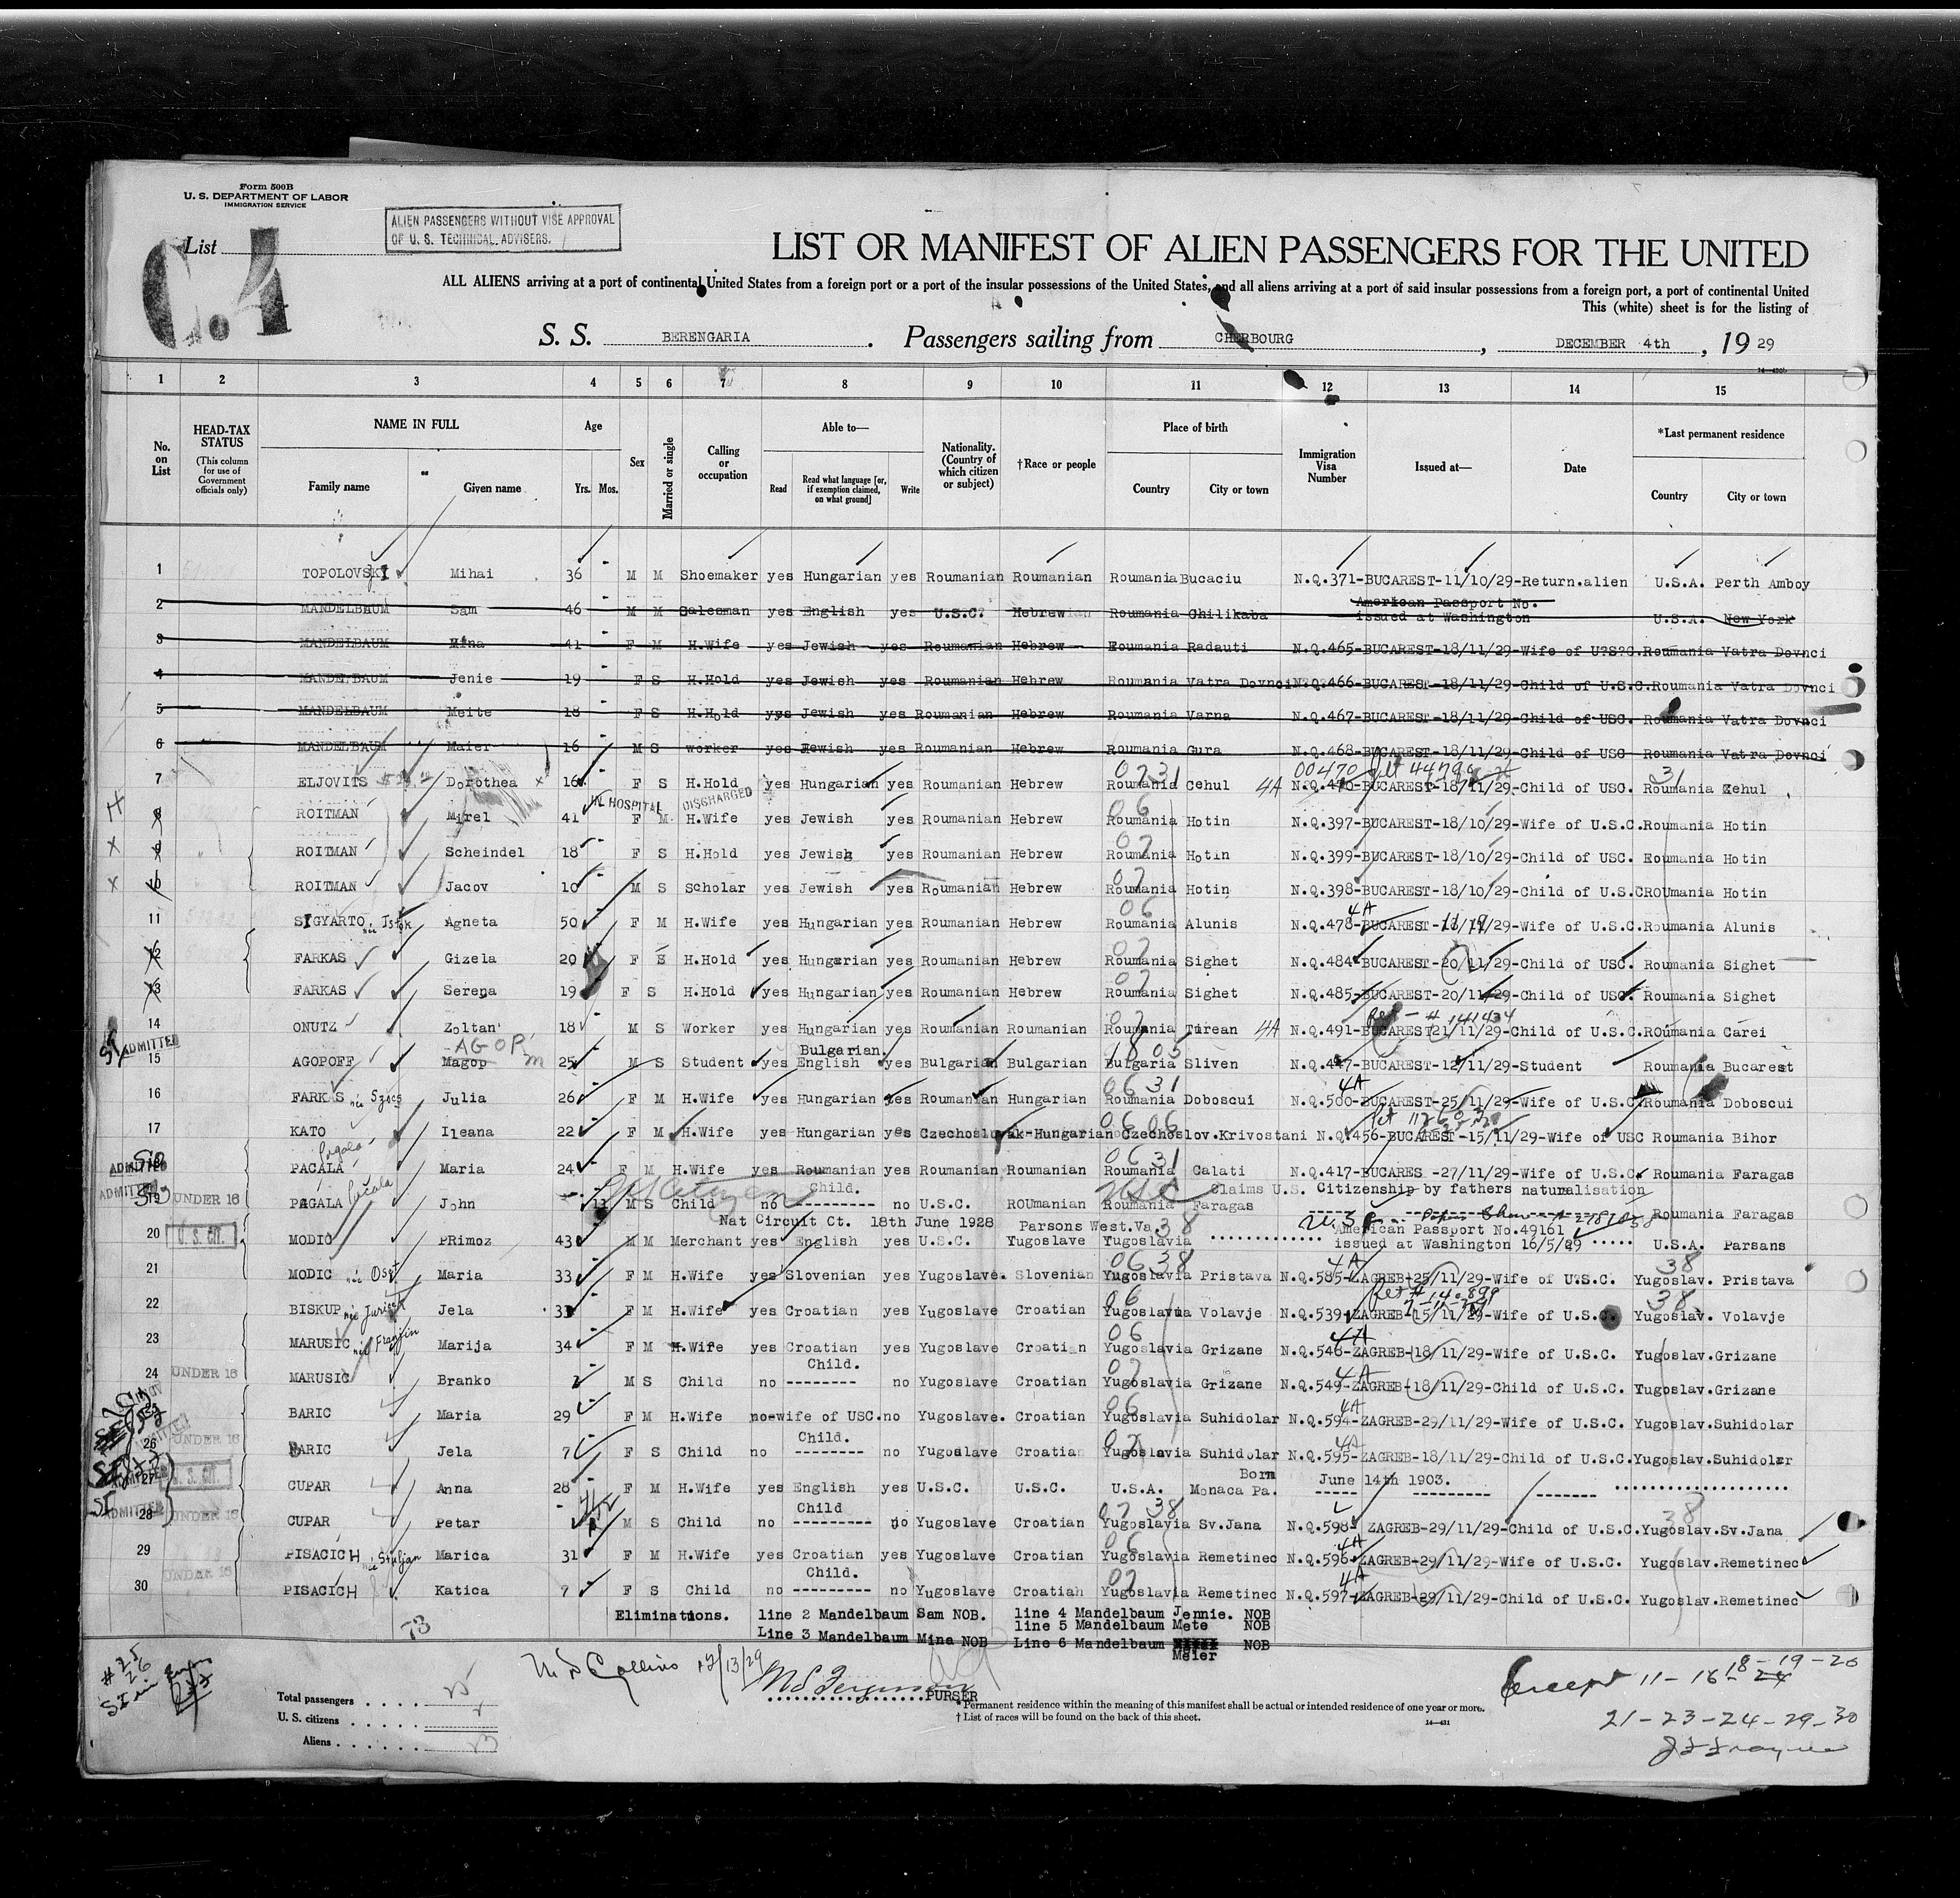 Form 500B
U. S. DEPARTMENT OF LABOR
IMMIGRATION SERVICE
List
C.4
ALIEN PASSENGERS WITHOUT VISE APPROVAL
OF U. S. TECHNICAL ADVISERS.
LIST OR MANIFEST OF ALIEN PASSENGERS FOR THE UNITED
ALL ALIENS arriving at a port of continental United States from a foreign port or a port of the insular possessions of the United States, and all aliens arriving at a port of said insular possessions from a foreign port, a port of continental United
This (white) sheet is for the listing of
S. S. BERENGARIA. Passengers sailing from CHERBOURG, DECEMBER 4th, 19 29
1 2 3 4 5 6 7 8 9 10 11 12 13 14 15
No. on List
HEAD-TAX STATUS (This column for use of Government officials only)
NAME IN FULL Family name Given name
Age Yrs. Mos.
Sex
Married or single
Calling or occupation
Able to— Read Read what language [or, if exemption claimed, on what ground] Write
Nationality. (Country of which citizen or subject)
†Race or people
Place of birth Country City or town
Immigration Visa Number
Issued at—
Date
*Last permanent residence Country City or town
1 TOPOLOVSKI Mihai 36 M M Shoemaker yes Hungarian yes Roumanian Roumanian Roumania Bucaciu N.Q.371-BUCAREST-11/10/29-Return.alien U.S.A. Perth Amboy
2 MANDELBAUM Sam 46 M M Salesman yes English yes U.S.C. Hebrew Roumania Chilikaba American Passport No. issued at Washington U.S.A. New York
3 MANDELBAUM Mina 41 F M H.Wife yes Jewish yes Roumanian Hebrew Roumania Radauti N.Q.465-BUCAREST-18/11/29-Wife of U?S?C.Roumania Vatra Dovnci
4 MANDELBAUM Jenie 19 F S H.Hold yes Jewish yes Roumanian Hebrew Roumania Vatra Dovnci N.Q.466-BUCAREST-18/11/29-Child of U.S.C.Roumania Vatra Dovnci
5 MANDELBAUM Meite 18 F S H.Hold yes Jewish yes Roumanian Hebrew Roumania Varna N.Q.467-BUCAREST-18/11/29-Child of USC. Roumania Vatra Dovnci
6 MANDELBAUM Maier 16 M S worker yes Jewish yes Roumanian Hebrew Roumania Gura N.Q.468-BUCAREST-18/11/29-Child of USC Roumania Vatra Dovnci
0731 00470 31
7 ELJOVITS Dorothea x 16 F S H.Hold yes Hungarian yes Roumanian Hebrew Roumania Cehul 4A N.Q.470-BUCAREST-18/11/29-Child of USC. Roumania Zehul
IN HOSPITAL DISCHARGED 06
8 ROITMAN Mirel 41 F M H.Wife yes Jewish yes Roumanian Hebrew Roumania Hotin N.Q.397-BUCAREST-18/10/29-Wife of U.S.C.Roumania Hotin
07
9 ROITMAN Scheindel 18 F S H.Hold yes Jewish yes Roumanian Hebrew Roumania Hotin N.Q.399-BUCAREST-18/10/29-Child of USC. Roumania Hotin
07
10 ROITMAN Jacov 10 M S Scholar yes Jewish yes Roumanian Hebrew Roumania Hotin N.Q.398-BUCAREST-18/10/29-Child of U.S.CROUmania Hotin
06 4A
11 SIGYARTO née Agneta 50 F M H.Wife yes Hungarian yes Roumanian Hebrew Roumania Alunis N.Q.478-BUCAREST-/29-Wife of U.S.C.Roumania Alunis
07
12 FARKAS Gizela 20 F S H.Hold yes Hungarian yes Roumanian Hebrew Roumania Sighet N.Q.484-BUCAREST-20/11/29-Child of USC. Roumania Sighet
07
13 FARKAS Serena 19 F S H.Hold yes Hungarian yes Roumanian Hebrew Roumania Sighet N.Q.485-BUCAREST-20/11/29-Child of USC. Roumania Sighet
07
14 ONUTZ Zoltan 18 M S Worker yes Hungarian yes Roumanian Roumanian Roumania Turean 4A N.Q.491-BUCAREST21/11/29-Child of U.S.C.ROumania Carei
SI ADMITTED AGOP m Bulgarian. 1805
15 AGOPOFF Magop 25 M S Student yes English yes Bulgarian Bulgarian Bulgaria Sliven N.Q.447-BUCAREST-12/11/29-Student Roumania Bucarest
0631 4A
16 FARKAS née Szöcs Julia 26 F M H.Wife yes Hungarian yes Roumanian Hungarian Roumania Doboscui N.Q.500-BUCAREST-25/11/29-Wife of U.S.C.Roumania Doboscui
0606
17 KATO Ileana 22 F M H.Wife yes Hungarian yes Czechoslovak-Hungarian Czechoslov.Krivostani N.Q.456-BUCAREST-15/11/29-Wife of USC Roumania Bihor
ADMITTED 0631
PACALA Maria 24 F M H.Wife yes Roumanian yes Roumanian Roumanian Roumania Calati N.Q.417-BUCARES -27/11/29-Wife of U.S.C. Roumania Faragas
ADMITTED US Citizen Child. USC Claims U.S. Citizenship by fathers naturalisation
19 UNDER 16 PACALA Pacala John 11 M S Child no --------- no U.S.C. ROUmanian Roumania Faragas Roumania Faragas
Nat Circuit Ct. 18th June 1928 Parsons West.Va. 38 American Passport No.49161
20 U.S. CIT. MODIC PRimoz 43 M M Merchant yes English yes U.S.C. Yugoslave Yugoslavia issued at Washington 16/5/29 U.S.A. Parsans
0638 4A 38
21 MODIC née Maria 33 F M H.Wife yes Slovenian yes Yugoslave. Slovenian Yugoslavia Pristava N.Q.585-ZAGREB-25/11/29-Wife of U?S.C. Yugoslav. Pristava
06 38
22 BISKUP née Jela 33 F M H.Wife yes Croatian yes Yugoslave Croatian Yugoslavia Volavje N.Q.539-ZAGREB-15/11/29-Wife of U.S. Yugoslav. Volavje
06 4A
23 MARUSIC née Marija 34 F M H.Wife yes Croatian yes Yugoslave Croatian Yugoslavia Grizane N.Q.546-ZAGREB-18/11/29-Wife of U.S.C. Yugoslav.Grizane
Child. 07 4A
24 UNDER 16 MARUSIC Branko M S Child no -------- no Yugoslave Croatian Yugoslavia Grizane N.Q.549-ZAGREB-18/11/29-Child of U.S.C. Yugoslav.Grizane
06 4A
BARIC Maria 29 F M H.Wife no-wife of USC.no Yugoslave. Croatian Yugoslavia Suhidolar N.Q.594-ZAGREB-29/11/29-Wife of U.S.C. Yugoslav.Suhidolar
Child. 07 4A
26 UNDER 16 BARIC Jela 7 F S Child no --------- no Yugoslave Croatian Yugoslavia Suhidolar N.Q.595-ZAGREB-18/11/29-Child of U.S.C.Yugoslav.Suhidolar
Born June 14th 1903.
27 ADMITTED U.S. CIT. CUPAR Anna 28 F M H.Wife yes English yes U.S.C. U.S.C. U.S.A. Monaca Pa.
SI ADMITTED Child 07 38 38
28 UNDER 16 CUPAR Petar M S Child no --------- no Yugoslave Croatian Yugoslavia Sv.Jana N.Q.598- ZAGREB-29/11/29-Child of U.S.C.Yugoslav.Sv.Jana
06 4A
29 PISACICH née Marica 31 F M H.Wife yes Croatian yes Yugoslave Croatian Yugoslavia Remetinec N.Q.596-ZAGREB-29/11/29-Wife of U.S.C. Yugoslav.Remetinec
Child. 07 4A
30 UNDER 16 PISACICH Katica 7 F S Child no --------- no Yugoslave Croatian Yugoslavia Remetinec N.Q.597-ZAGREB-29/11/29-Child of U.S.C. Yugoslav.Remetinec
73
Eliminations. line 2 Mandelbaum Sam NOB. line 4 Mandelbaum Jennie. NOB
line 5 Mandelbaum Mete NOB
Line 3 Mandelbaum Mina NOB Line 6 Mandelbaum Meier NOB
#25
26
12/13/29
PURSER
Total passengers . . . .
U. S. citizens . . . . .
Aliens . . . . . .
*Permanent residence within the meaning of this manifest shall be actual or intended residence of one year or more.
† List of races will be found on the back of this sheet.
14—431
Except 11-16-18-19-20
21-23-24-29-30